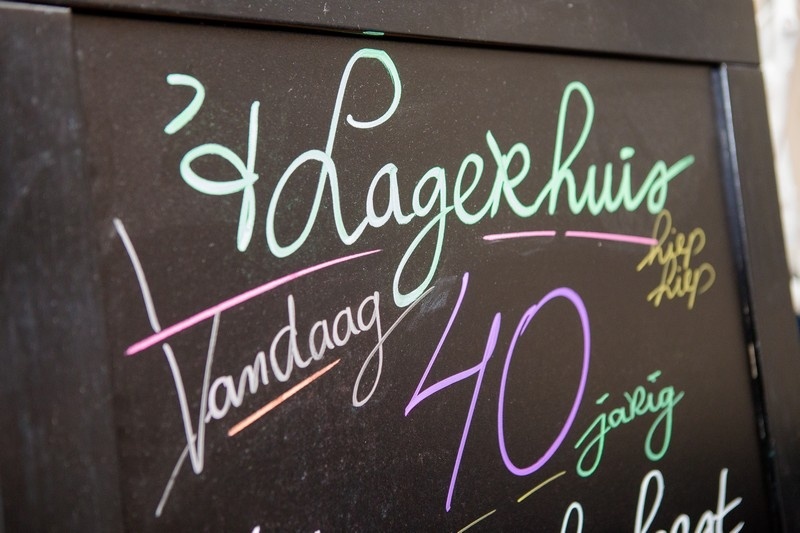 't Lagerhuis
hiep
hiep
Vandaag 40
jarig